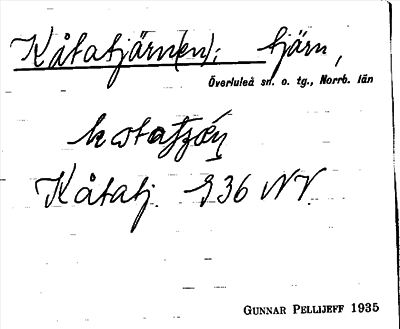 Kåtatjärn(en): tjärn,
Överluleå sn. o. tg., Norrb. län
Kåtatj. 936 NV.
GUNNAR PELLIJEFF 1935